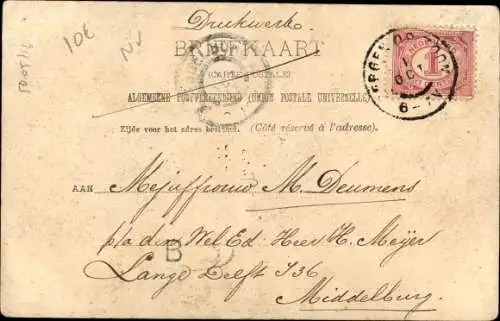 Drukwerk
10€
BRIEFKAART
(CARTE POSTALE)
ALGEMEENE POSTVEREENIGING (UNION POSTALE UNIVERSELLE)
Zijde voor het adres bestemd. (Côté réservé à l'adresse).
NEDERLAND
1
OCT
6-
AAN Mejuffrouw M. Deumens
p/a den Wel Ed: Heer H. Meijer
B
Lange Delft I36
Middelburg.